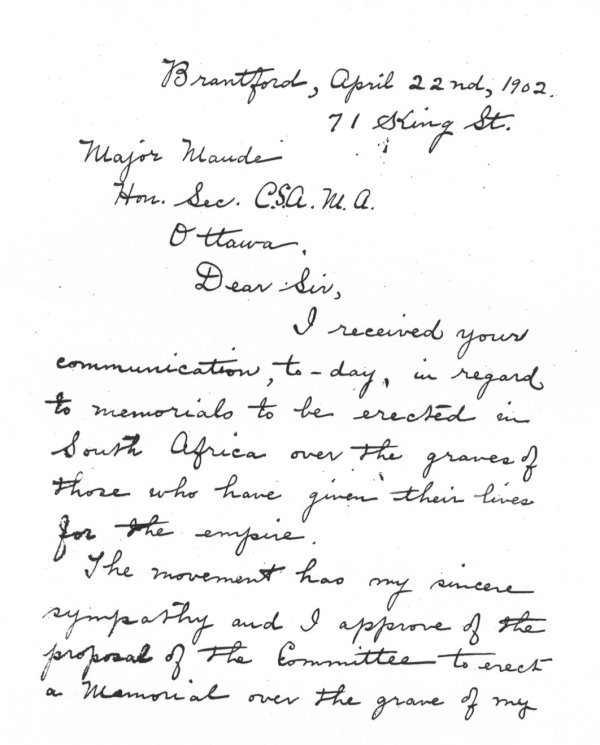 Brantford, April 22nd, 1902.
71 King St.
Major Maude
Hon. Sec. C.S.A.M.A.
Ottawa.
Dear Sir,
I received your
communication, to-day, in regard
to memorials to be erected in
South Africa over the graves of
those who have given their lives
for the empire.
The movement has my sincere
sympathy and I approve of the
proposal of the Committee to erect
a Memorial over the grave of my